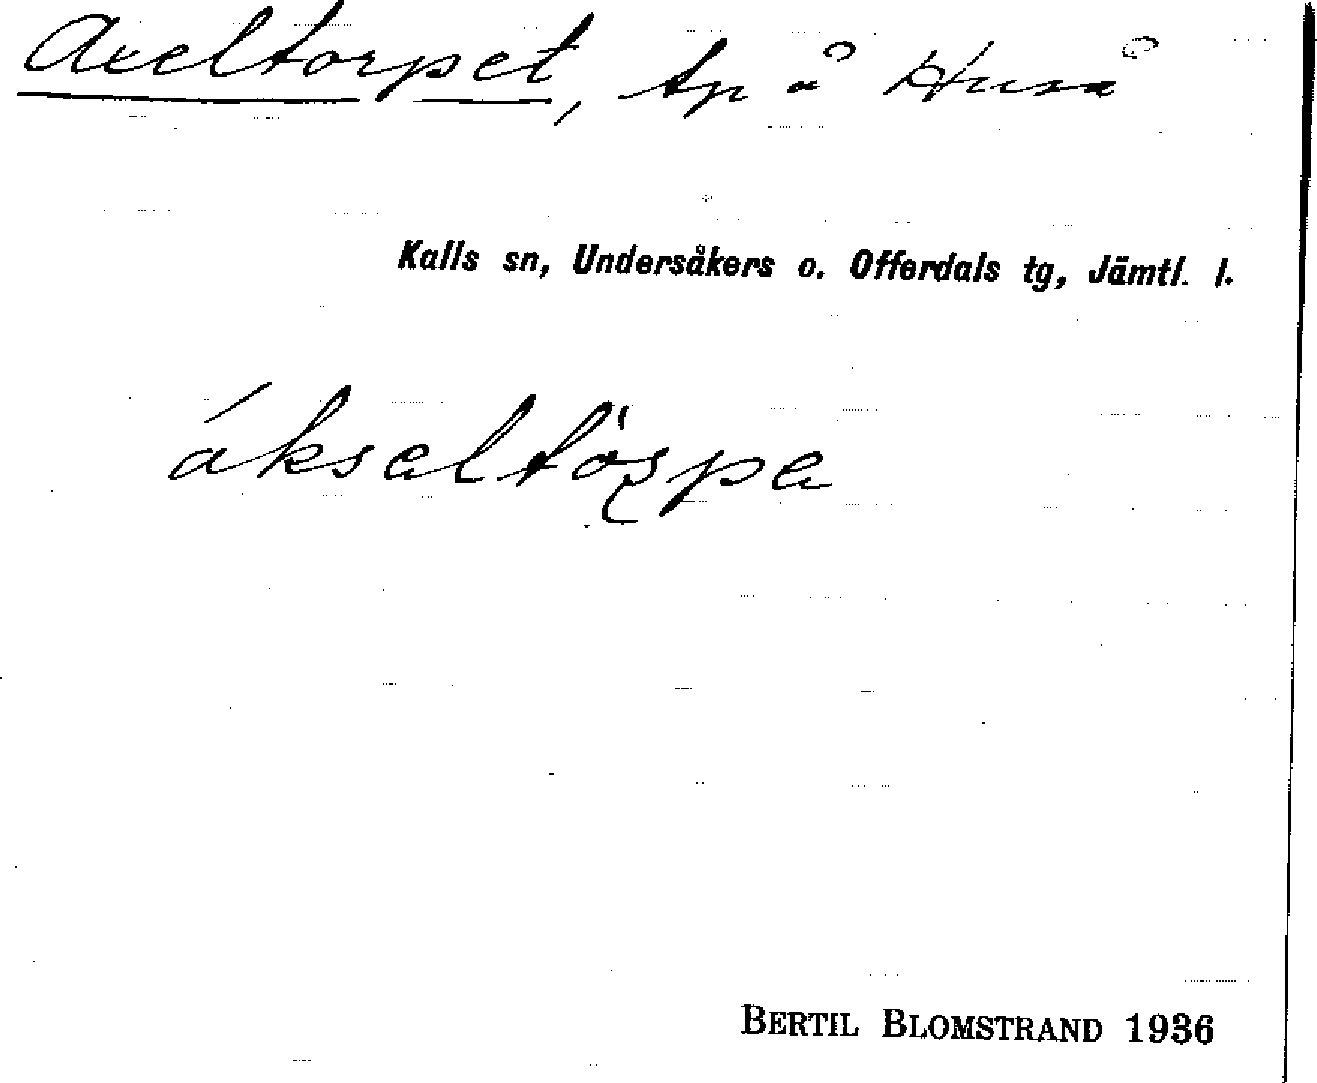 Axeltorpet, tp å Huså
Kalls sn, Undersåkers o. Offerdals tg, Jämtl. l.
áksaltòrpa
BERTIL BLOMSTRAND 1936